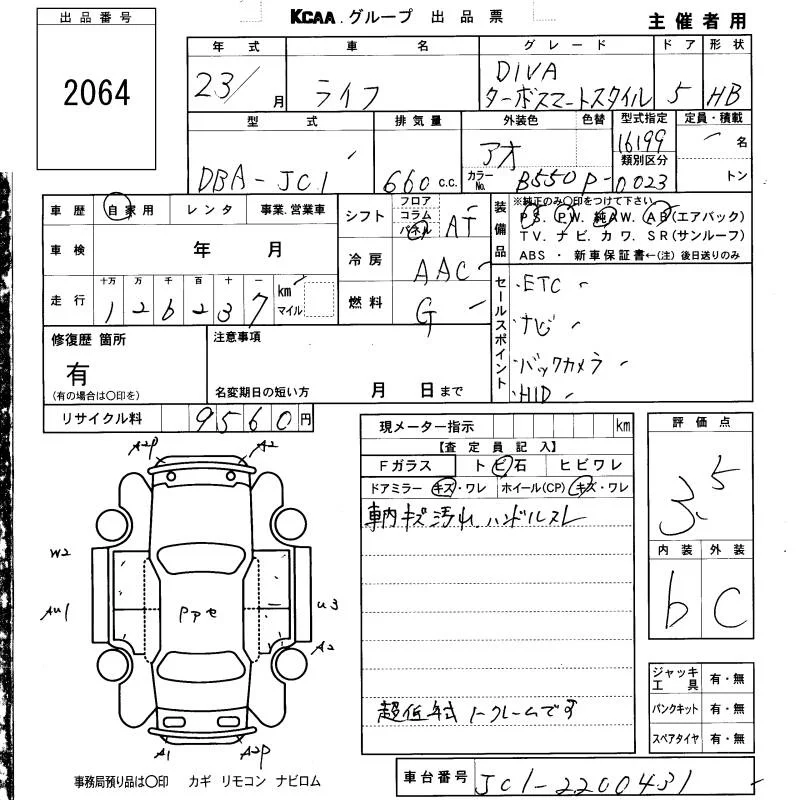 出品番号
2064
KCAA.グループ 出品票
主催者用
年式 車名 グレード ドア 形状
23/ 月 ライフ DIVA ターボスマートスタイル 5 HB
型式 排気量 外装色 色替 型式指定 定員・積載
DBA-JC1 660 c.c. アオ 16199 名
カラーNo. B550P- 類別区分 0023 トン
車歴 自家用 レンタ 事業.営業車
車検 年 月
走行 十万 万 千 百 十 一
126237 km マイル
シフト フロア コラム パネル AT
冷房 AAC
燃料 G
装備品 ※純正のみ○印をつけて下さい。
PS. PW. 純AW. AB(エアバック)
TV. ナビ. カワ. SR(サンルーフ)
ABS ・ 新車保証書←(注) 後日送りのみ
セールスポイント
・ETC
・ナビ
・バックカメラ
・HID
修復歴 箇所
有
(有の場合は○印を)
注意事項
名変期日の短い方 月 日まで
リサイクル料 9560円
現メーター指示 km
【査定員記入】
Fガラス トビ石 ヒビワレ
ドアミラー キズ・ワレ ホイール(CP) キズ・ワレ
車内キズ汚れ.ハンドルスレ
超低年式ノークレームです
評価点
3.5
内装 外装
b C
ジャッキ工具 有・無
パンクキット 有・無
スペアタイヤ 有・無
A2P A2
W2
AU1 Pアセ U3
A2
A1 A2P
事務局預り品は○印 カギ リモコン ナビロム
車台番号 JC1-2200431